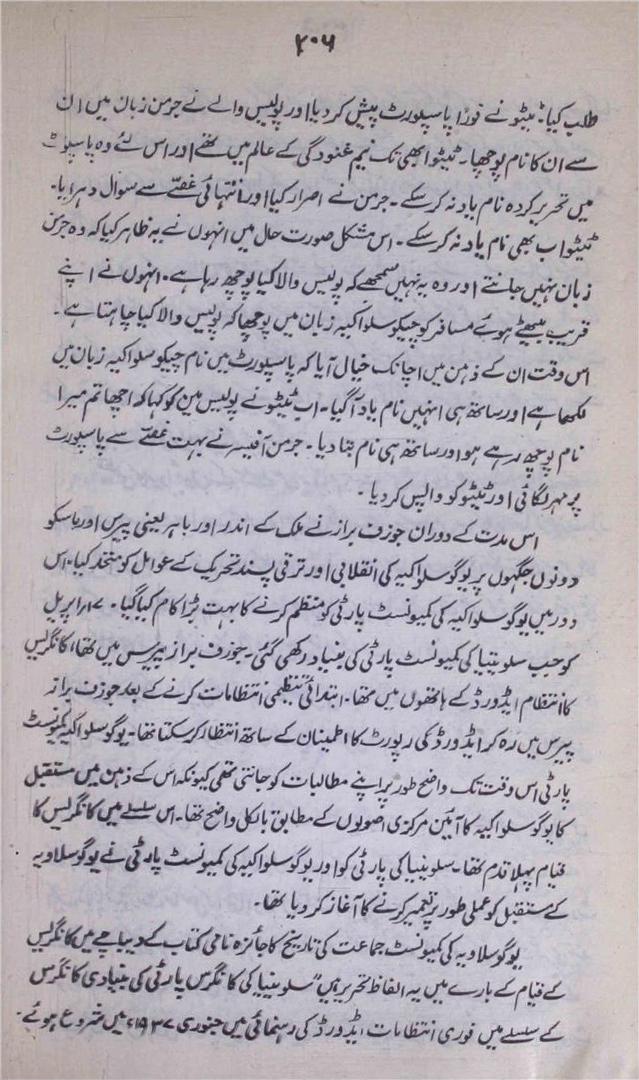 ۲۰۶
طلب کیا۔ ٹیٹو نے فوراً پاسپورٹ پیش کر دیا اور پولیس والے نے جرمن زبان میں ان
سے ان کا نام پوچھا۔ ٹیٹو ابھی تک نیم غنودگی کے عالم میں تھے اور اس لئے وہ پاسپورٹ
میں تحریر کردہ نام یاد نہ کر سکے۔ جرمن نے اصرار کیا اور انتہائی غصّے سے سوال دہرایا۔
ٹیٹو اب بھی نام یاد نہ کر سکے۔ اس مشکل صورت حال میں انہوں نے یہ ظاہر کیا کہ وہ جرمن
زبان نہیں جانتے اور وہ یہ نہیں سمجھے کہ پولیس والا کیا پوچھ رہا ہے۔ انہوں نے اپنے
قریب بیٹھے ہوئے مسافر کو چیکوسلواکیہ زبان میں پوچھا کہ پولیس والا کیا چاہتا ہے۔
اس وقت ان کے ذہن میں اچانک خیال آیا کہ پاسپورٹ میں نام چیکوسلواکیہ زبان میں
لکھا ہے اور ساتھ ہی انہیں نام یاد آ گیا۔ اب ٹیٹو نے پولیس مین کو کہا کہ اچھا تم میرا
نام پوچھ رہے ہو اور ساتھ ہی نام بتا دیا۔ جرمن آفیسر نے بہت غصّے سے پاسپورٹ
پر مہر لگائی اور ٹیٹو کو واپس کر دیا۔
اس مدت کے دوران جوزف براز نے ملک کے اندر اور باہر یعنی پیرس اور ماسکو
دونوں جگہوں پر یوگوسلواکیہ کی انقلابی اور ترقی پسند تحریک کے عوامل کو متحد کیا۔ اس
دور میں یوگوسلواکیہ کی کمیونسٹ پارٹی کو منظم کرنے کا بہت بڑا کام کیا گیا۔ ۱۷؍اپریل
کو جب سلوینیا کی کمیونسٹ پارٹی کی بنیاد رکھی گئی۔ جوزف براز پیرس میں تھا، کانگریس
کا انتظام ایڈورڈ کے ہاتھوں میں تھا۔ ابتدائی تنظیمی انتظامات کرنے کے بعد جوزف براز
پیرس میں رہ کر ایڈورڈ کی رپورٹ کا اطمینان کے ساتھ انتظار کر سکتا تھا۔ یوگوسلواکیہ کمیونسٹ
پارٹی اس وقت تک واضح طور پر اپنے مطالبات کو جانتی تھی کیونکہ اس کے ذہن میں مستقبل
کا یوگوسلواکیہ کا آئین مرکزی اصولوں کے مطابق بالکل واضح تھا۔ اس سلسلے میں کانگریس کا
قیام پہلا قدم تھا۔ سلوینیا کی پارٹی کو اور یوگوسلواکیہ کی کمیونسٹ پارٹی نے یوگوسلاویہ
کے مستقبل کو عملی طور پر تعمیر کرنے کا آغاز کر دیا تھا۔
یوگوسلاویہ کی کمیونسٹ جماعت کی تاریخ کا جائزہ نامی کتاب کے دیباچے میں کانگریس
کے قیام کے بارے میں یہ الفاظ تحریر ہیں "سلوینیا کی کانگرس پارٹی کی بنیادی کانگرس
کے سلسلے میں فوری انتظامات ایڈورڈ کی رہنمائی میں جنوری ۱۹۳۷ء میں شروع ہوئے۔